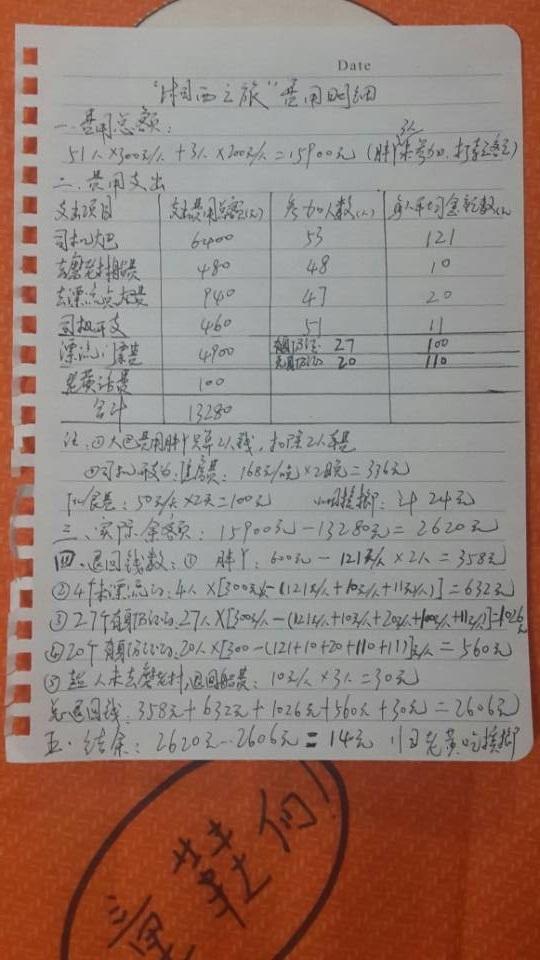 Date
"湘西之旅"费用明细
一.费用总额:
3人
51人×300元/人 + 3人×200元/人 = 15900元 (胖丫未参加.
二.费用支出
支出项目 支出费用总额(元) 参加人数(人) 每人平均金额数(元)
司机大巴 6400 53 121
去 船费 480 48 10
去漂流点 费 940 47 20
司机开支 460 51 11
漂流门票费 4900 27 100
20 110
老黄话费 100
合计 13280
注:①大巴费用胖丫只算2人钱,扣除2人车费
②司机开支为:住房费:168元/晚×2晚=336元
伙食费:50元/天×2天=100元 24元
三.实际余额:15900元-13280元=2620元
四.退回钱数:① 胖丫:600元-121元/人×2人=358元
②4个未漂流的:4人×[300元-(121元/人+10元/人+11元/人)]=632元
③27个 的:27人×[300元/人-(121元/人+10元/人+20元/人+100元/人+11元/人)]=1026元
④20个 的:20人×[300-(121+10+20+110+11)]元/人=560元
⑤ 人未去 村,退回船费:10元/人×3人=30元
总退回钱:358元+632元+1026元+560元+30元=2606元
五.结余:2620元-2606元=14元 老黄吃槟榔
童鞋们!